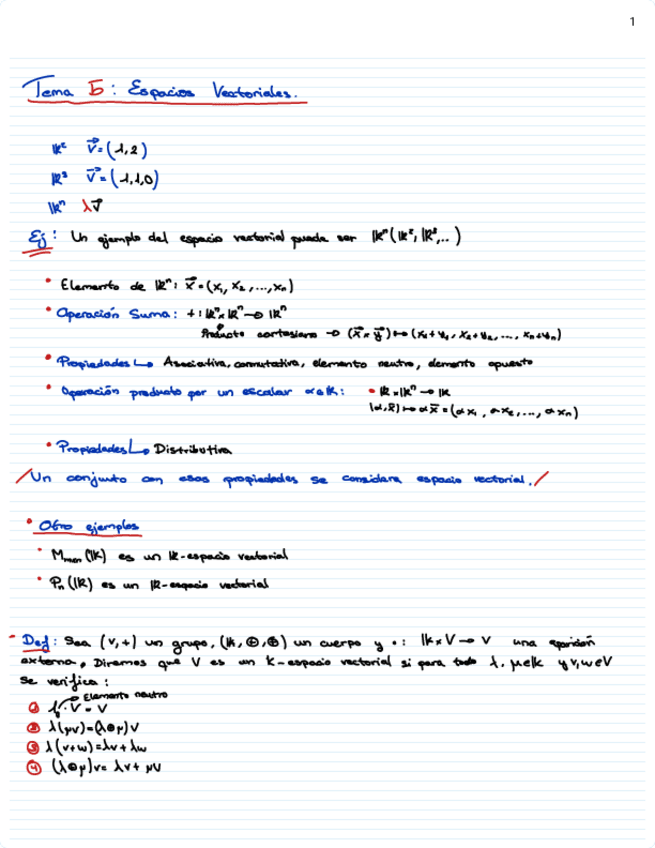 1
Tema 5: Espacios Vectoriales.
ℝ² v⃗=(1,2)
ℝ³ v⃗=(1,1,0)
ℝⁿ λv⃗
Ej: Un ejemplo del espacio vectorial puede ser ℝⁿ(ℝ², ℝ³,..)
• Elemento de ℝⁿ: x⃗=(x₁, x₂, ..., xₙ)
• Operación Suma: +: ℝⁿ×ℝⁿ→ℝⁿ
Producto cartesiano → (x⃗×y⃗)↦(x₁+y₁, x₂+y₂, ..., xₙ+yₙ)
• Propiedades ↳ Asociativa, conmutativa, elemento neutro, elemento opuesto
• Operación producto por un escalar α∈ℝ: • ℝ×ℝⁿ→ℝ
(α,x⃗)↦αx⃗=(αx₁, αx₂, ..., αxₙ)
• Propiedades ↳ Distributiva
/Un conjunto con esas propiedades se considera espacio vectorial./
• Otro ejemplos
• Mₘₓₙ(𝕂) es un 𝕂-espacio vectorial
• Pₙ(ℝ) es un ℝ-espacio vectorial
- Def: Sea (V,+) un grupo, (𝕂,⊕,⊗) un cuerpo y •: 𝕂×V→V una
externa. Diremos que V es un K-espacio vectorial si para todo λ, μ∈𝕂 y v,w∈V
se verifica:
→ Elemento neutro
① · V = V
② λ(μv)=(λ⊗μ)v
③ λ(v+w)=λv+λw
④ (λ⊕μ)v= λv+μv